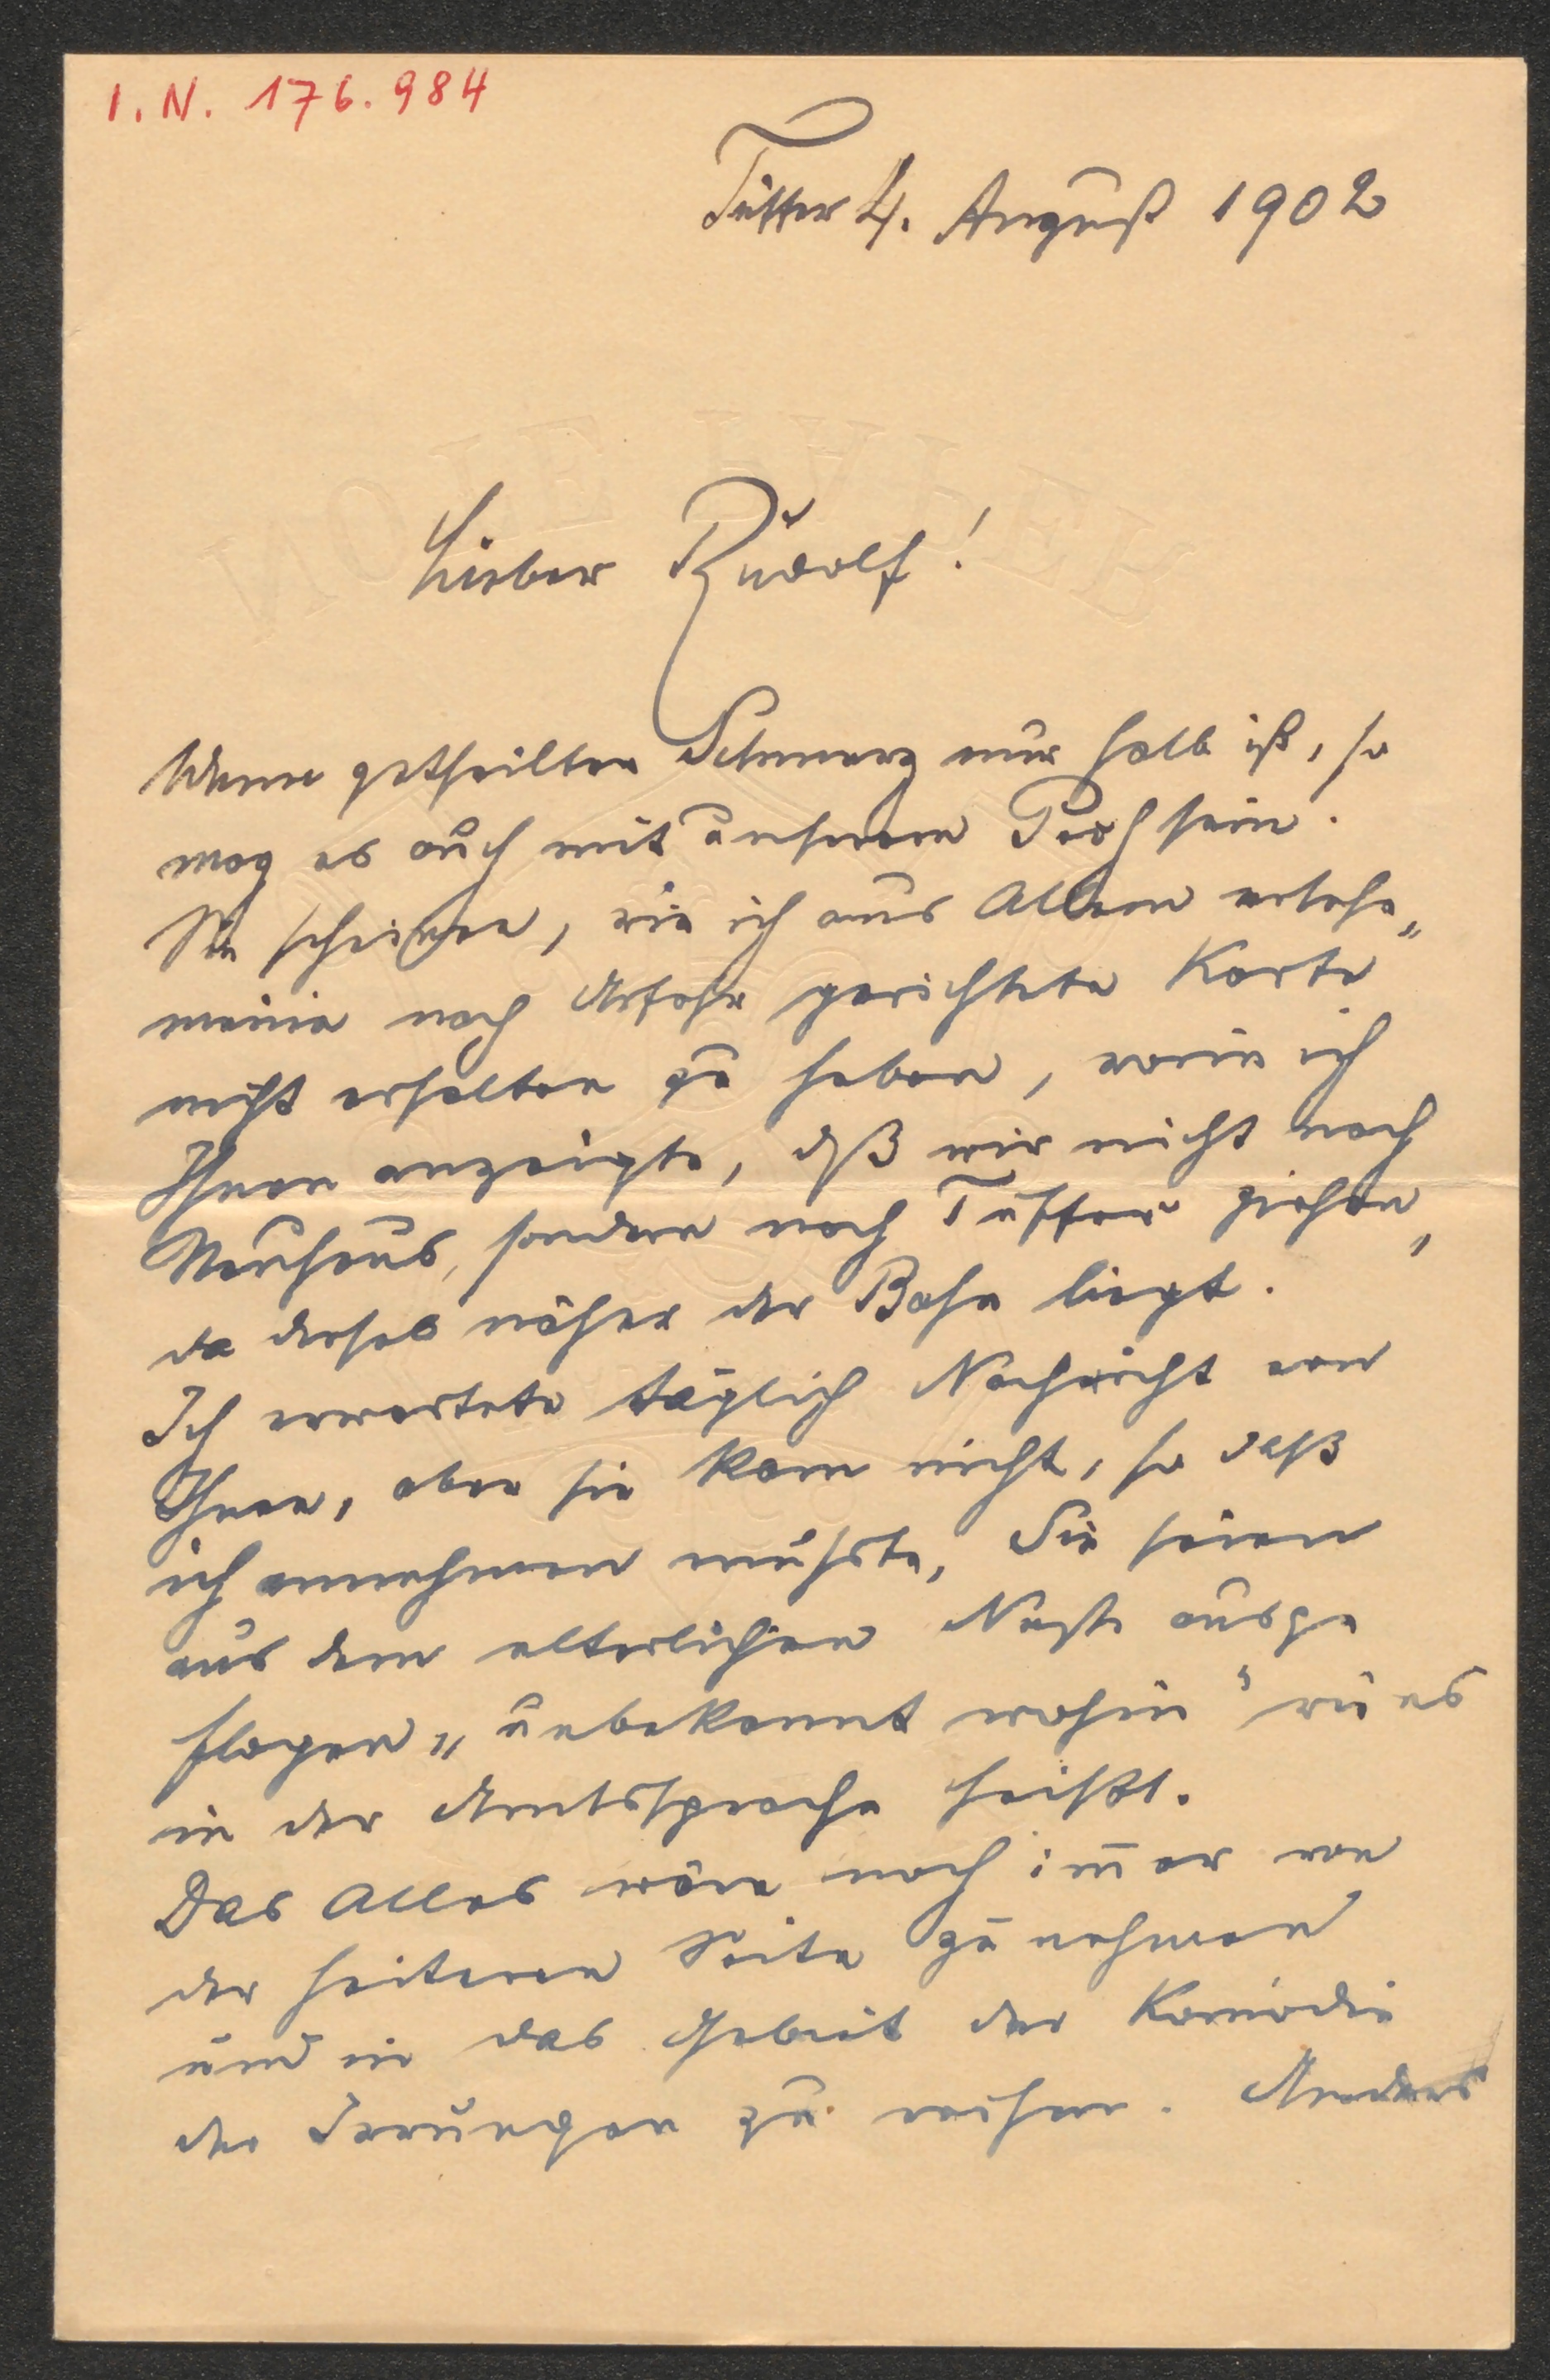 I. N. 176.984
Tüffer 4. August 1902
Lieber Rudolf!
Wenn getheilter Schmerz nur halb ist, so
mag es auch mit unserem Pech sein.
Sie scheinen, wie ich aus Allem ersehe,
meine nach Urfahr gerichtete Karte
nicht erhalten zu haben, worin ich
Ihnen anzeigte, dß wir nicht nach
Neuhaus, sondern nach Tüffer ziehen,
da dieses näher der Bahn liegt.
Ich erwartete täglich Nachricht von
Ihnen, aber sie kam nicht, so daß
ich annehmen mußte, Sie seien
aus dem elterlichen Neste ausge
flogen „unbekannt wohin“ wie es
in der Amtssprache heißt.
Das Alles wäre noch im̅er von
der heiteren Seite zu nehmen
und in das Gebiet der Komödie
der Irrungen zu reihen. Anders